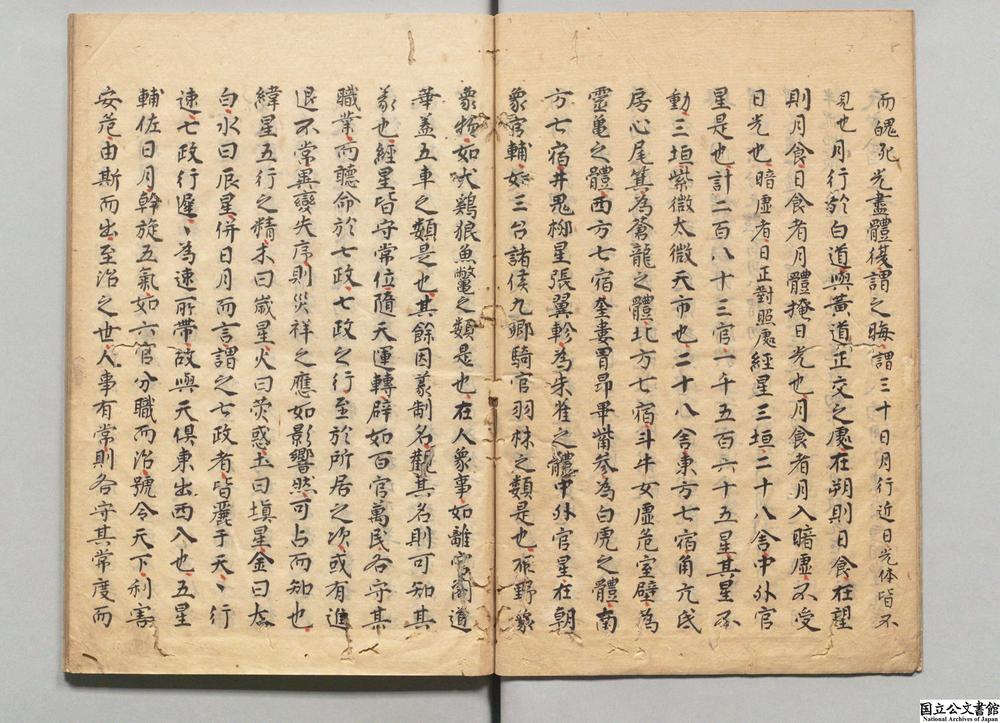 而魄死光盡體後謂之晦謂三十日月行近日光体皆不
見也月行於白道與黃道正交之處在朔則日食在望
則月食日食者月體掩日光也月食者月入暗虛不受
日光也暗虛者日正對照處經星三垣二十八舍中外官
星是也計二百八十三官一千五百六十五星其星不
動三垣紫微太微天市也二十八舍東方七宿角亢氐
房心尾箕為蒼龍之體北方七宿斗牛女虛危室壁為
靈龜之體西方七宿奎婁胃昴畢觜参為白虎之體南
方七宿井鬼柳星張翼軫為朱雀之體中外官星在朝
象官輔如三台諸侯九卿騎官羽林之類是也在野象
象物如犬鷄狼魚鼈之類是也在人象事如離宮閣道
華盖五車之類是也其餘因義制名觀其名則可知其
義也經星皆守常位隨天運轉辟如百官萬民各守其
職業而聽命於七政七政之行至於所居之次或有進
退不常異變失序則災祥之應如影響然可占而知也
緯星五行之精木曰歳星火曰熒惑土曰塡星金曰太
白水曰辰星併日月而言謂之七政者皆麗于天天行
速七政行遲遲為速所帶故與天俱東出西入也五星
輔佐日月斡旋五氣如六官分職而治號令天下利害
安危由斯而出至治之世人事有常則各守其常度而
国立公文書館
National Archives of Japan